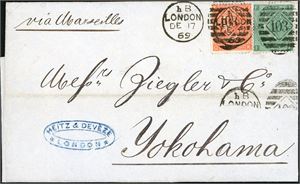 via Marseilles
LB
LONDON
DE 17
69
103
Messrs Ziegler & Co
LB
LONDON
HEITZ & DEVEZE
LONDON
Yokohama